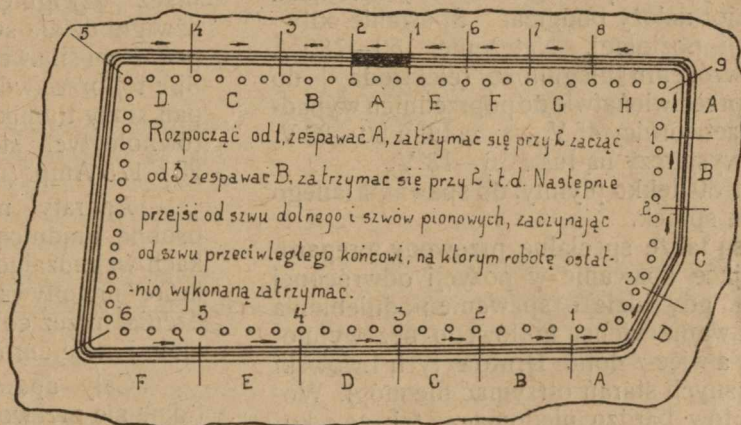 5 4 3 2 1 6 7 8 9
D C B A E F G H A
Rozpocząć od 1, zespawać A, zatrzymac się przy 2 zacząć
od 3 zespawać B, zatrzymac się przy 2 i t.d. Następnie
przejść od szwu dolnego i szwów pionowych, zaczynając
od szwu przeciwległego końcowi, na ktorym robotę ostat-
-nio wykonaną zatrzymać.
1
B
2
C
3
D
6 5 4 3 2 1
F E D C B A